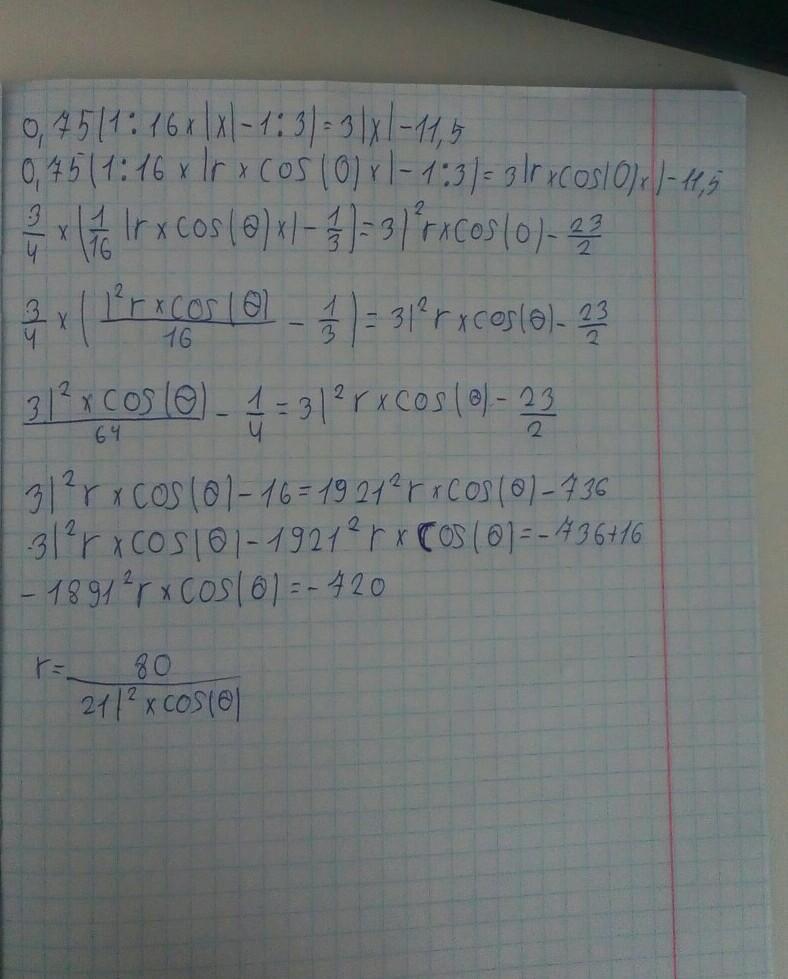 0,75(1:16x|x|-1:3)=3|x|-11,5
0,75(1:16 x |r x cos(θ)x|-1:3)=3|r x cos(θ)x|-11,5
3/4 x (1/16 |r x cos(θ)x|-1/3)=3|²r x cos(θ)-23/2
3/4 x (|²r x cos(θ)/16 - 1/3)=3|²r x cos(θ)-23/2
3|² x cos(θ)/64 - 1/4=3|²r x cos(θ)-23/2
3|²r x cos(θ)-16=192|²r x cos(θ)-736
3|²r x cos(θ)-192|²r x cos(θ)=-736+16
-189|²r x cos(θ)=-720
r=80/21|² x cos(θ)